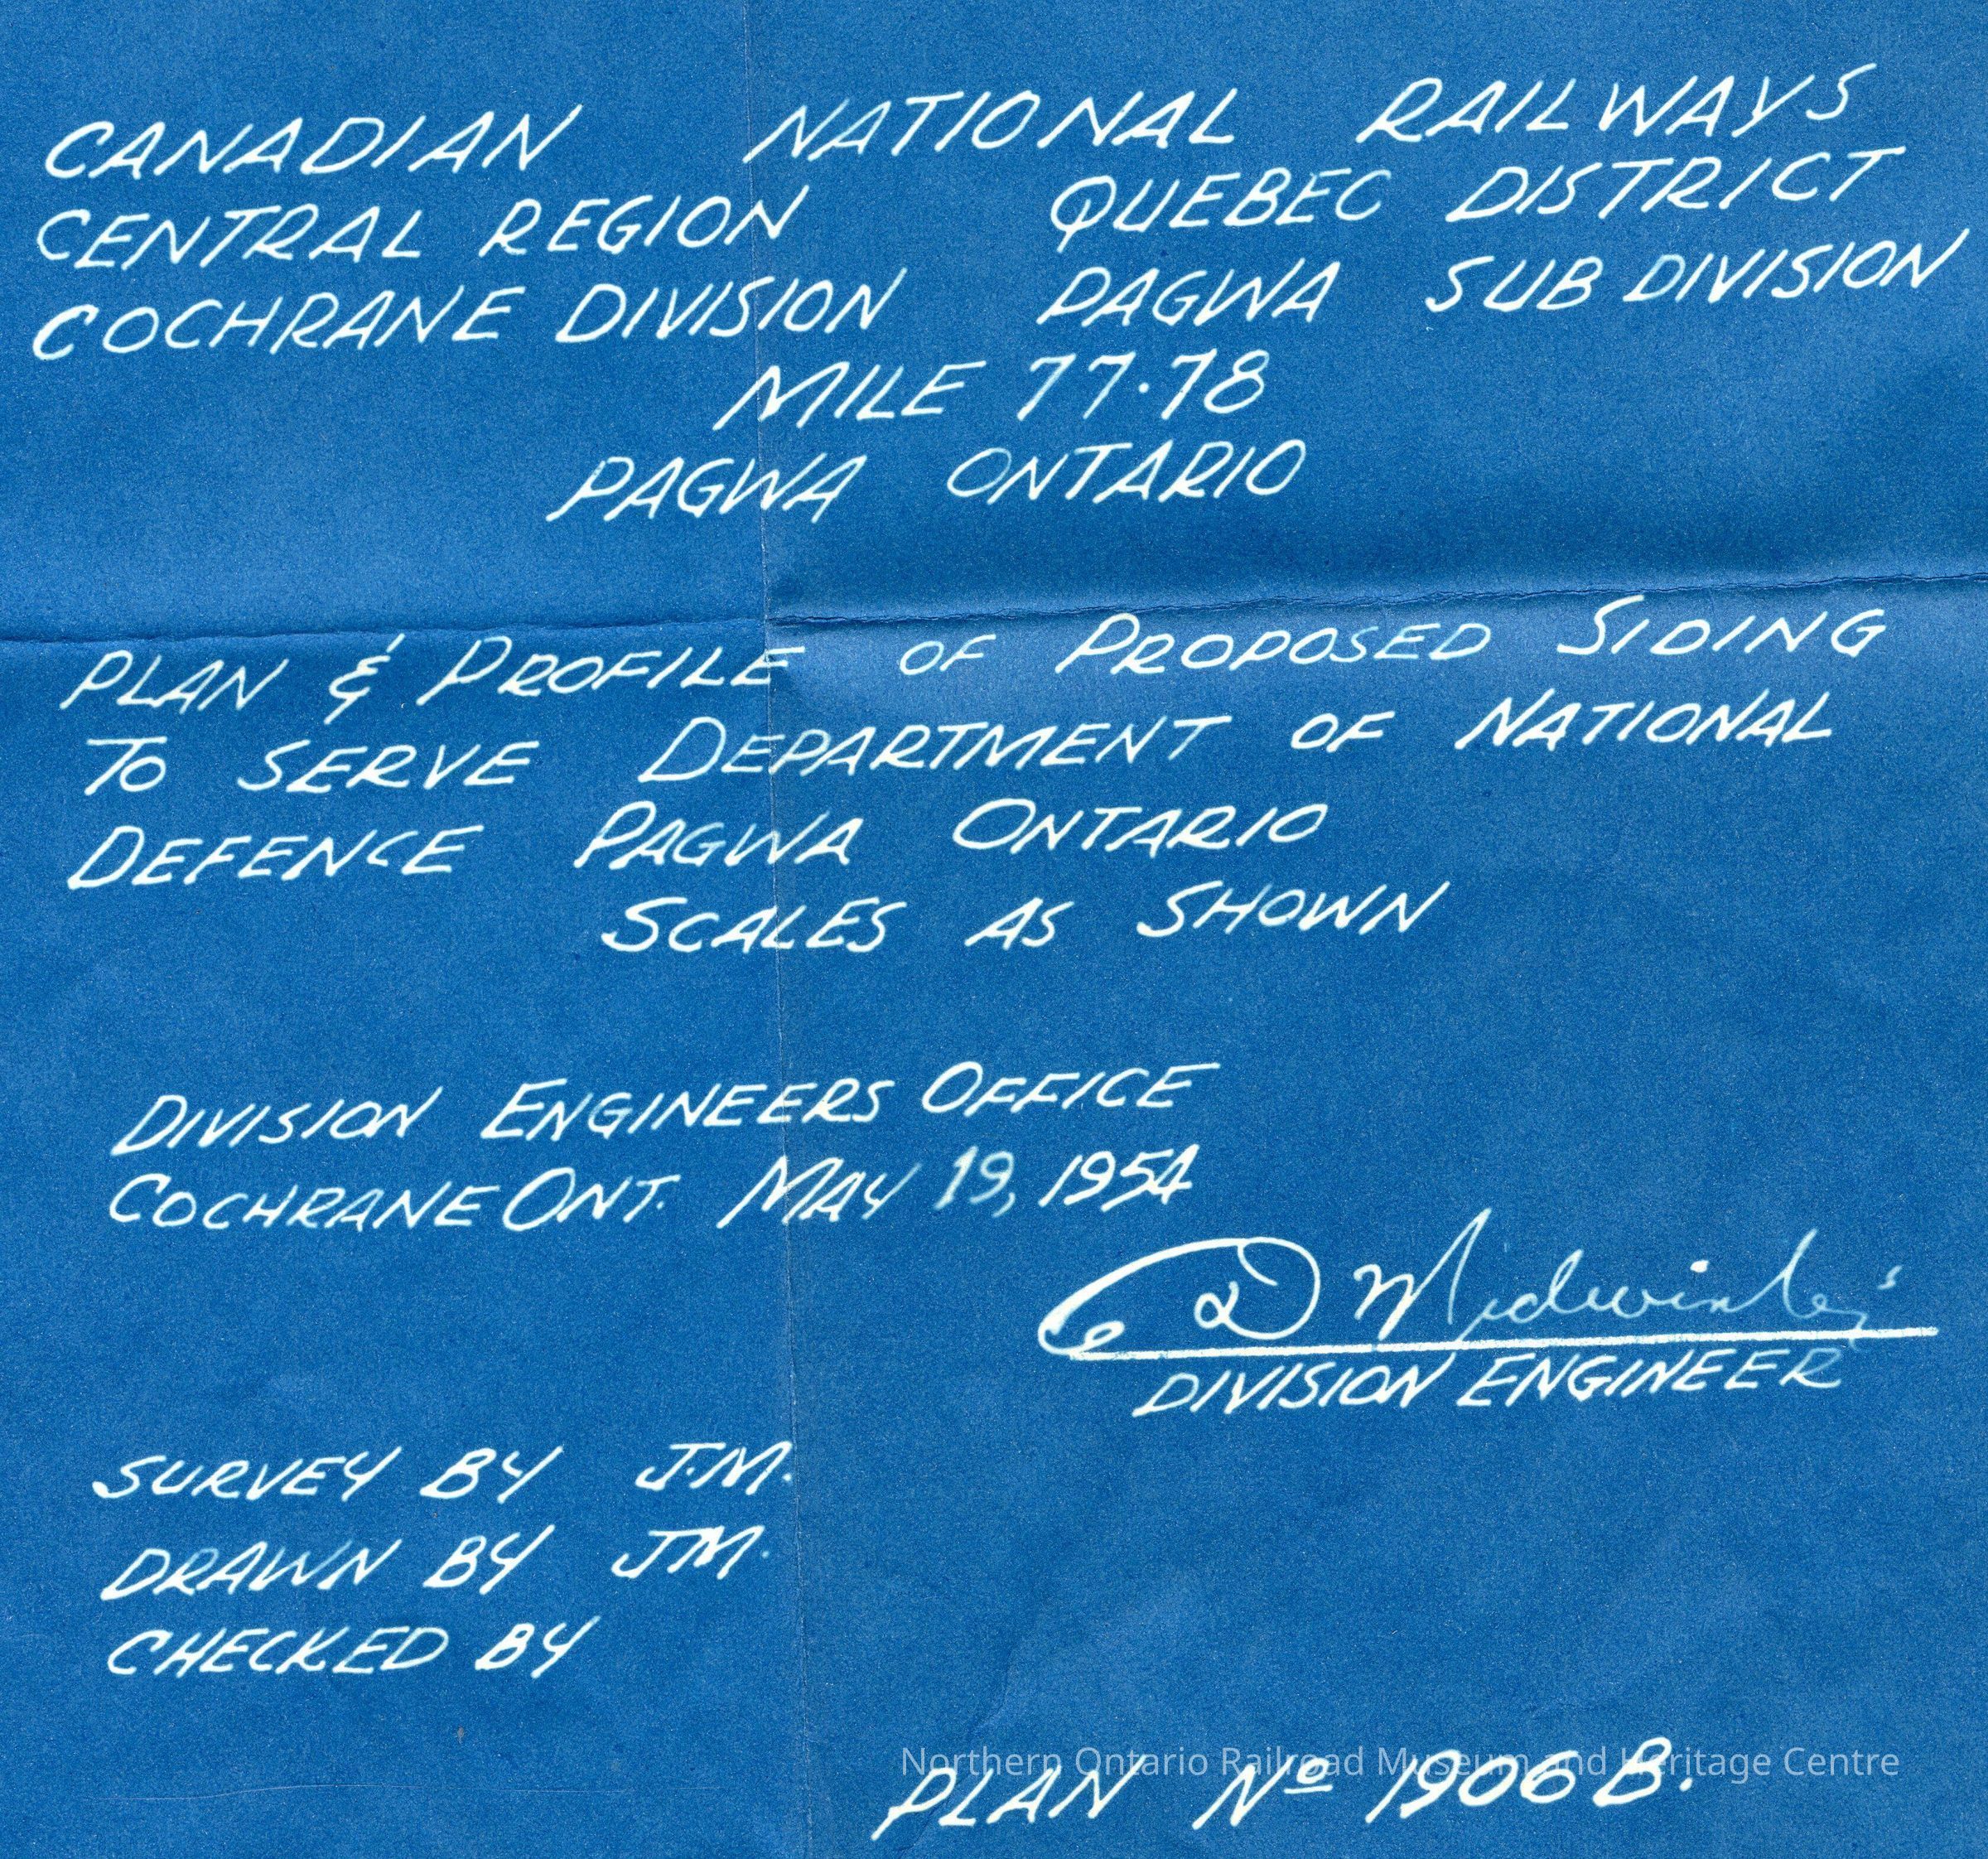 CANADIAN NATIONAL RAILWAYS
CENTRAL REGION QUEBEC DISTRICT
COCHRANE DIVISION PAGWA SUBDIVISION
MILE 77.78
PAGWA ONTARIO
PLAN & PROFILE OF PROPOSED SIDING
TO SERVE DEPARTMENT OF NATIONAL
DEFENCE PAGWA ONTARIO
SCALES AS SHOWN
DIVISION ENGINEERS OFFICE
COCHRANE ONT. MAY 19, 1954
D Midwinter
DIVISION ENGINEER
SURVEY BY J.M.
DRAWN BY JM.
CHECKED BY
Northern Ontario Railroad Museum and Heritage Centre
PLAN Nº 1906B.